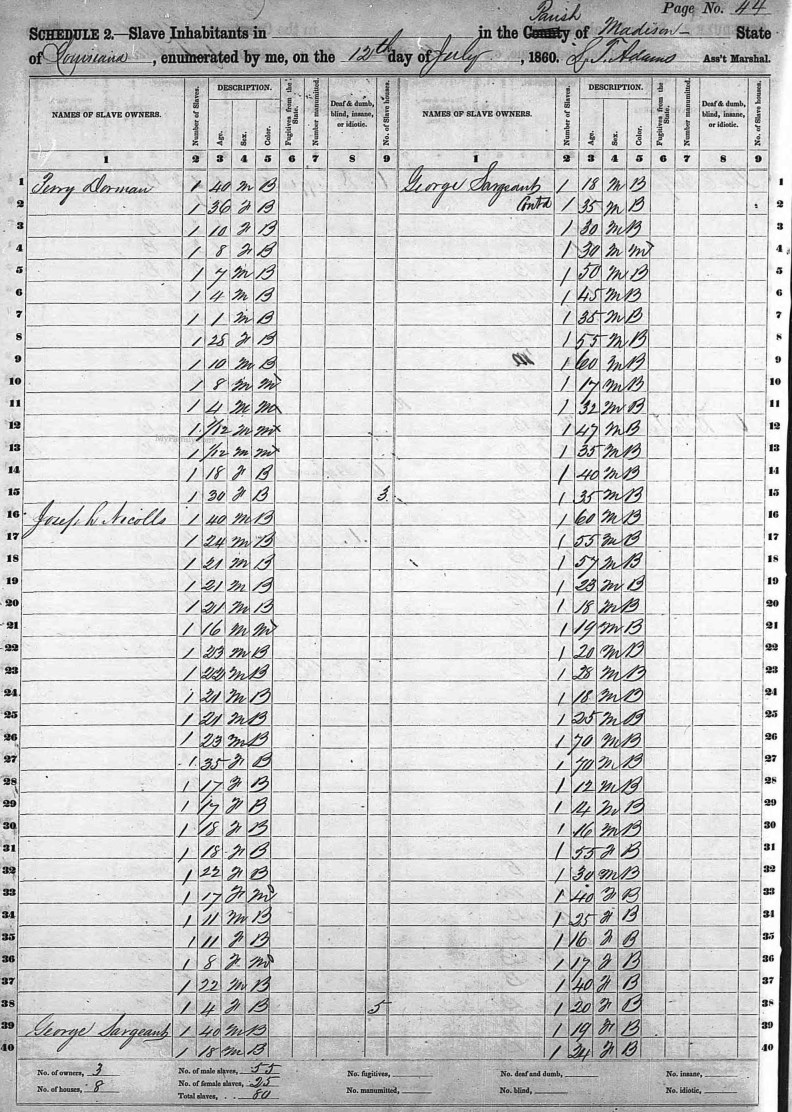 Page No. 44
SCHEDULE 2.—Slave Inhabitants in in the County Parish of Madison State
of Louisiana, enumerated by me, on the 12th day of July, 1860. L. T. Adams Ass't Marshal.
NAMES OF SLAVE OWNERS. Number of Slaves. DESCRIPTION. Age. Sex. Color. Fugitives from the State. Number manumitted. Deaf & dumb, blind, insane, or idiotic. No. of Slave houses. NAMES OF SLAVE OWNERS. Number of Slaves. DESCRIPTION. Age. Sex. Color. Fugitives from the State. Number manumitted. Deaf & dumb, blind, insane, or idiotic. No. of Slave houses.
1 2 3 4 5 6 7 8 9 1 2 3 4 5 6 7 8 9
1 Terry Dorman 1 40 M B George Sargeant 1 18 M B 1
2 1 36 F B Contd 1 35 M B 2
3 1 10 F B 1 30 M B 3
4 1 8 F B 1 30 M M 4
5 1 7 M B 1 50 M B 5
6 1 4 M B 1 45 M B 6
7 1 1 M B 1 35 M B 7
8 1 28 F B 1 55 M B 8
9 1 10 M B 1 60 M B 9
10 1 8 M M 1 17 M B 10
11 1 4 M M 1 32 M B 11
12 1 M M 1 47 M B 12
13 1 1/12 M M 1 35 M B 13
14 1 18 F B 1 40 M B 14
15 1 30 F B 3 1 35 M B 15
16 Joseph L Nicolls 1 40 M B 1 60 M B 16
17 1 24 M B 1 55 M B 17
18 1 21 M B 1 57 M B 18
19 1 21 M B 1 23 M B 19
20 1 21 M B 1 18 M B 20
21 1 16 M M 1 19 M B 21
22 1 23 M B 1 20 M B 22
23 1 22 M B 1 28 M B 23
24 1 21 M B 1 18 M B 24
25 1 21 M B 1 25 M B 25
26 1 23 M B 1 70 M B 26
27 1 35 F B 1 70 M B 27
28 1 17 F B 1 12 M B 28
29 1 17 F B 1 14 M B 29
30 1 18 F B 1 16 M B 30
31 1 18 F B 1 55 F B 31
32 1 22 F B 1 30 M B 32
33 1 17 F M 1 40 F B 33
34 1 11 M B 1 25 F B 34
35 1 11 F B 1 16 F B 35
36 1 8 F M 1 17 F B 36
37 1 22 M B 1 40 F B 37
38 1 4 F B 5 1 20 F B 38
39 George Sargeant 1 40 M B 1 19 F B 39
40 1 18 M B 1 24 F B 40
No. of owners, 3 No. of male slaves, 55 No. fugitives, No. deaf and dumb, No. insane,
No. of houses, 8 No. of female slaves, 25 No. manumitted, No. blind, No. idiotic,
Total slaves, 80